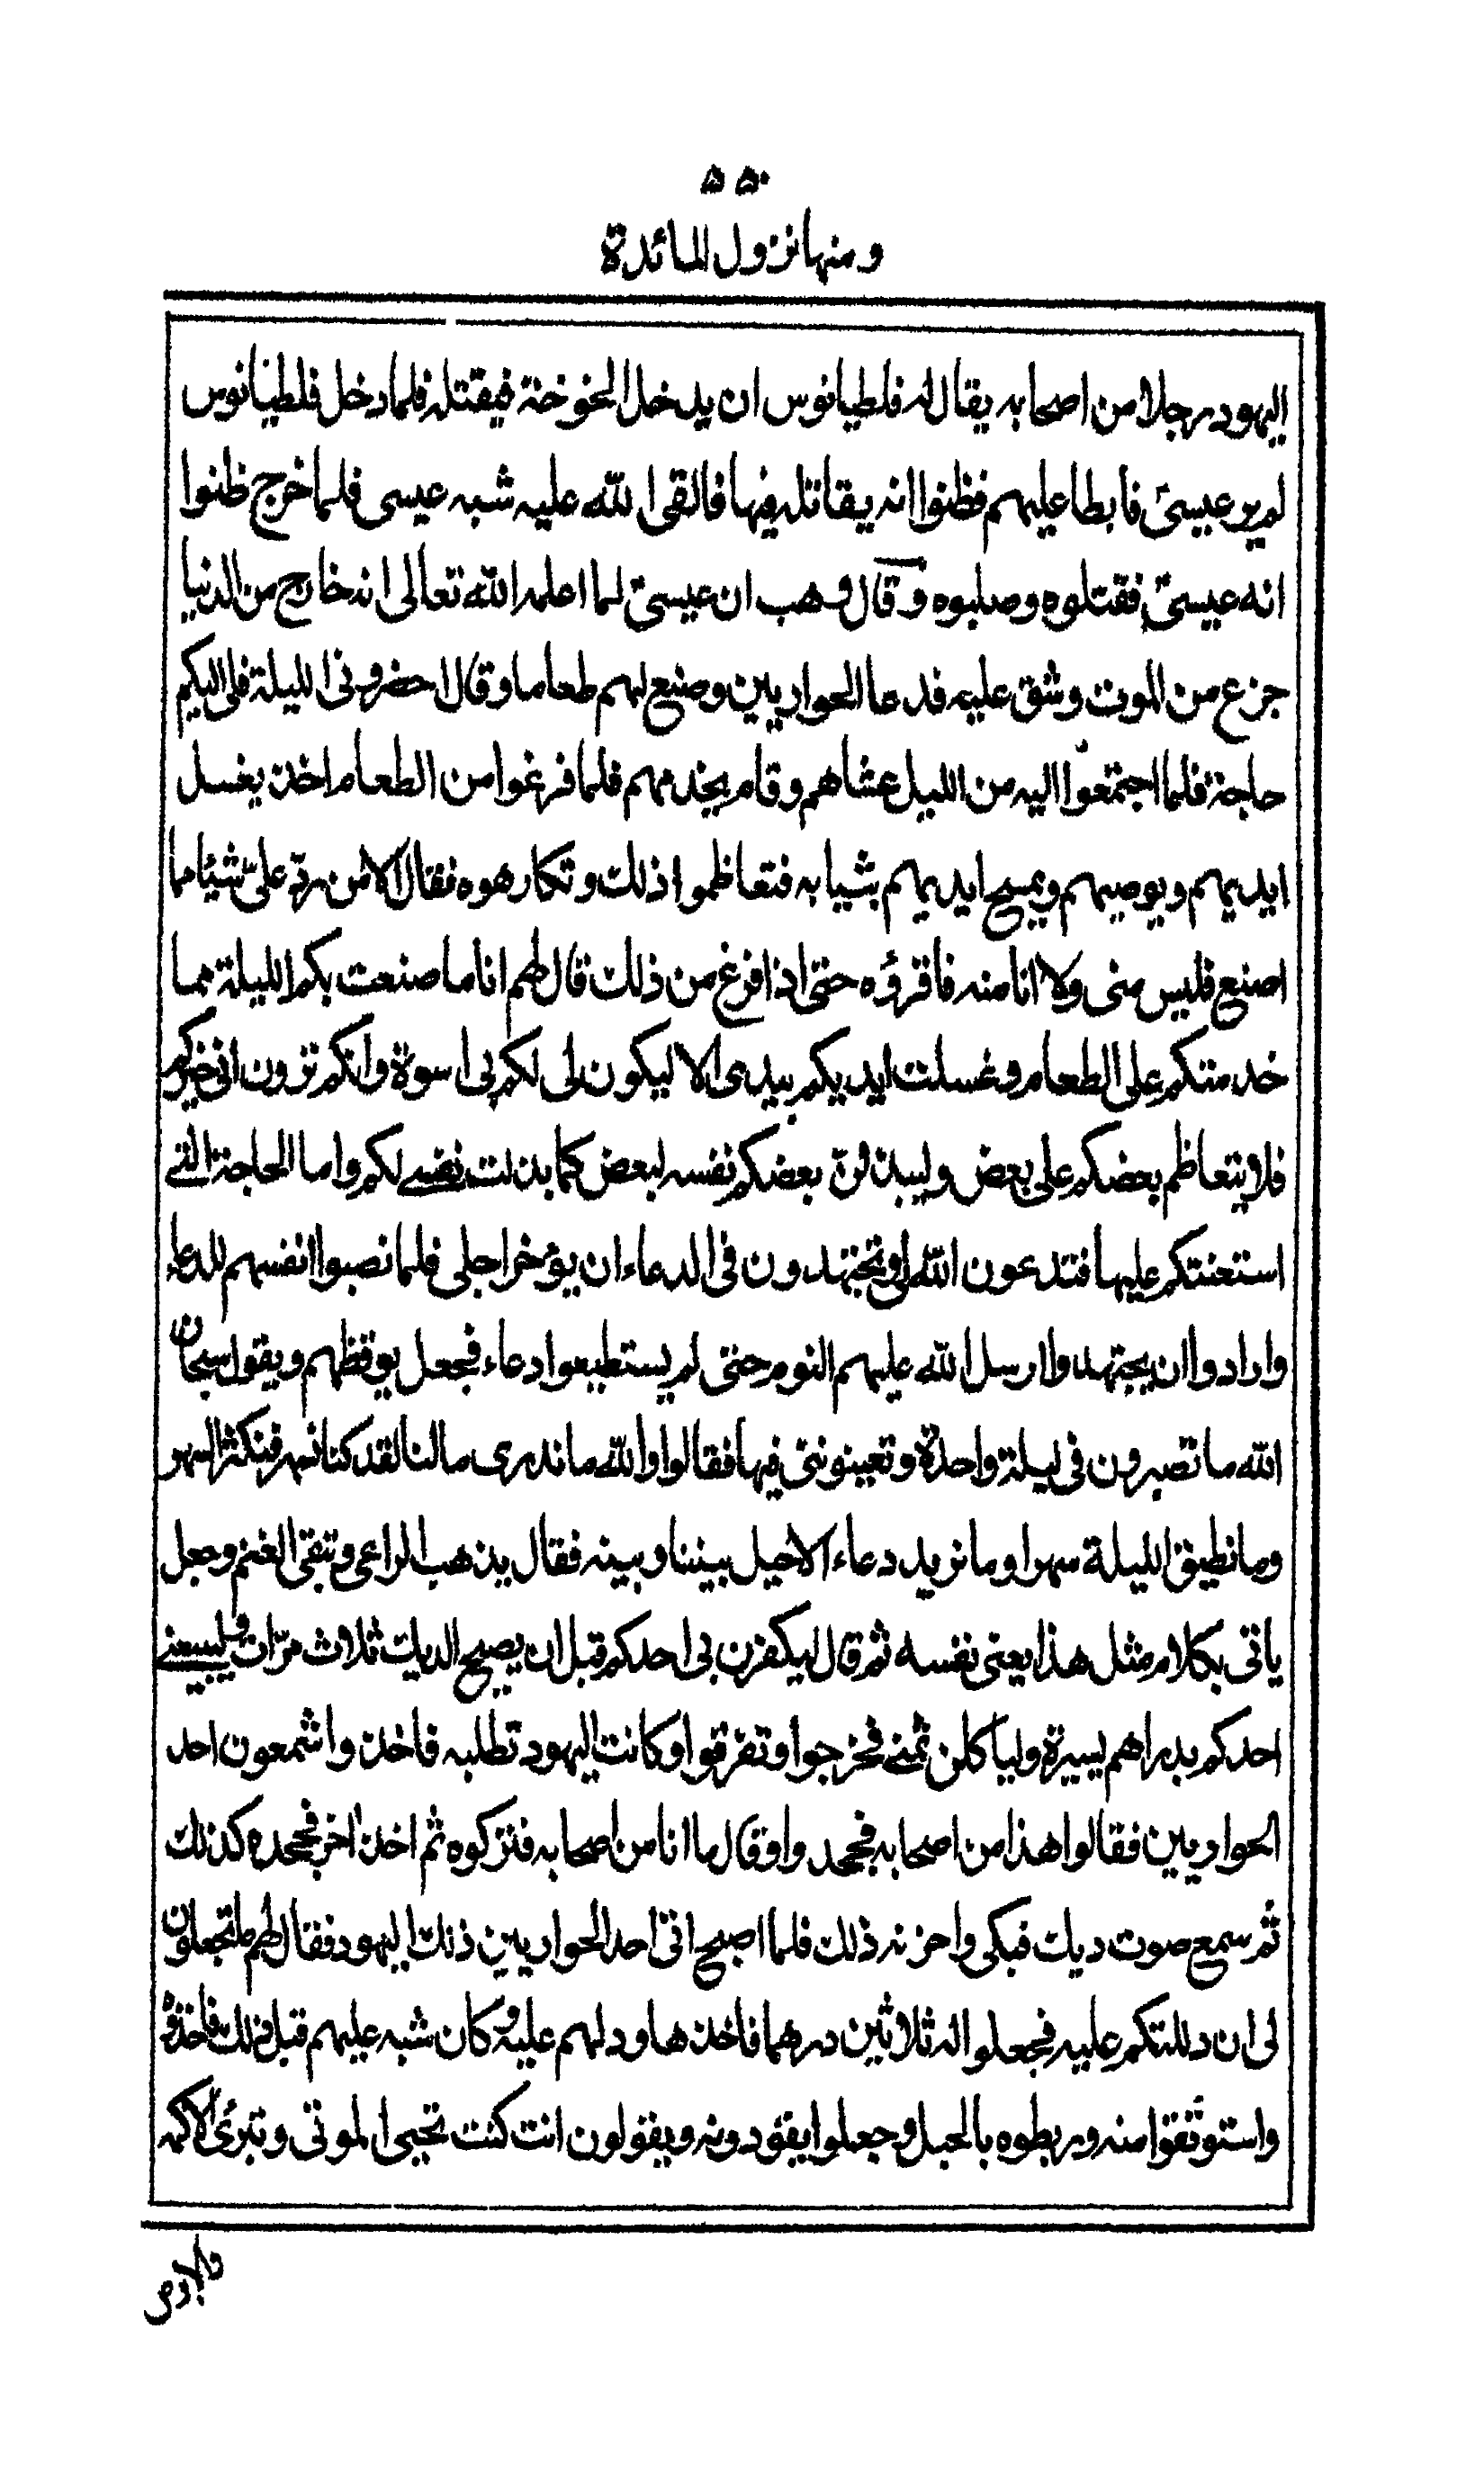 ٥٥٠
ومنها نزول المائدة
اليهود رجلا من اصحابه يقال له فلطيانوس ان يدخل الخوخة فيقتله فلما دخل فلطيانوس
لم ير عيسىٰ فابطا عليهم فظنوا انه يقاتله فيها فالقى الله عليه شبه عيسى فلما خرج ظنوا
انه عيسىٰ فقتلوه وصلبوه وقال وهب ان عيسىٰ لما اعلمه الله تعالى انه خارج من الدنيا
جزع من الموت وشق عليه فدعا الحواريين وصنع لهم طعاما وقال احضروني الليلة فلى اليكم
حاجة فلما اجتمعوا اليه من الليل عشاهم وقام يخدمهم فلما فرغوا من الطعام اخذ يغسل
ايديهم ويوصيهم ويمسح ايديهم بثيابه فتعاظموا ذلك وتكارهوه فقال الا من رد علىّ شيئا مما
اصنع فليس منى ولا انا منه فاقروه حتى اذا فرغ من ذلك قال لهم اناما صنعت بكم الليلة مما
خدمتكم على الطعام وغسلت ايديكم بيدى الا ليكون لى لكم بى اسوة وانكم ترون انى خيركم
فلا يتعاظم بعضكم على بعض وليبذلن بعضكم نفسه لبعض كما بذلت نفسے لكم واما الحاجة التے
استعنتكم عليها فتدعون الله لى وتجتهدون فى الدعاء ان يؤخر اجلى فلما نصبوا انفسهم للدعاء
وارادوا ان يجتهدوا ارسل الله عليهم النوم حتى لم يستطيعوا دعاء فجعل يوقظهم ويقول سبحان
الله ما تصبرون فى ليلة واحدة وتعينوننى فيها فقالوا والله ما ندرى ما لنا لقد كنا نسهر فنكثر السهر
وما نطيق الليلة سهرا وما نريد دعاء الا حيل بيننا وبينه فقال يذهب الراعى وتبقى الغنم وجعل
ياتى بكلام مثل هذا يعنى نفسه ثم قال ليكفرن بى احدكم قبل ان يصيح الديك ثلاث مرّات وليبيعنے
احدكم بدراهم يسيرة ولياكلن ثمنے فخرجوا وتفرقوا وكانت اليهود تطلبه فاخذوا شمعون احد
الحواريين فقالوا هذا من اصحابه فجحد وا وقال ما انا من اصحابه فتركوه ثم اخذ اخر فجحده كذلك
ثم سمع صوت ديك فبكى واحزنه ذلك فلما اصبح اتى احد الحواريين ذلك اليهود فقال لهم ما تجعلون
لى ان دللتكم عليه فجعلوا له ثلاثين درهما فاخذها ودلهم عليه وكان شبه عليهم قبل ذلك فاخذوه
واستوثقوا منه وربطوه بالحبل وجعلوا يقودونه ويقولون انت كنت تحيى الموتى وتبرئ الاكمه